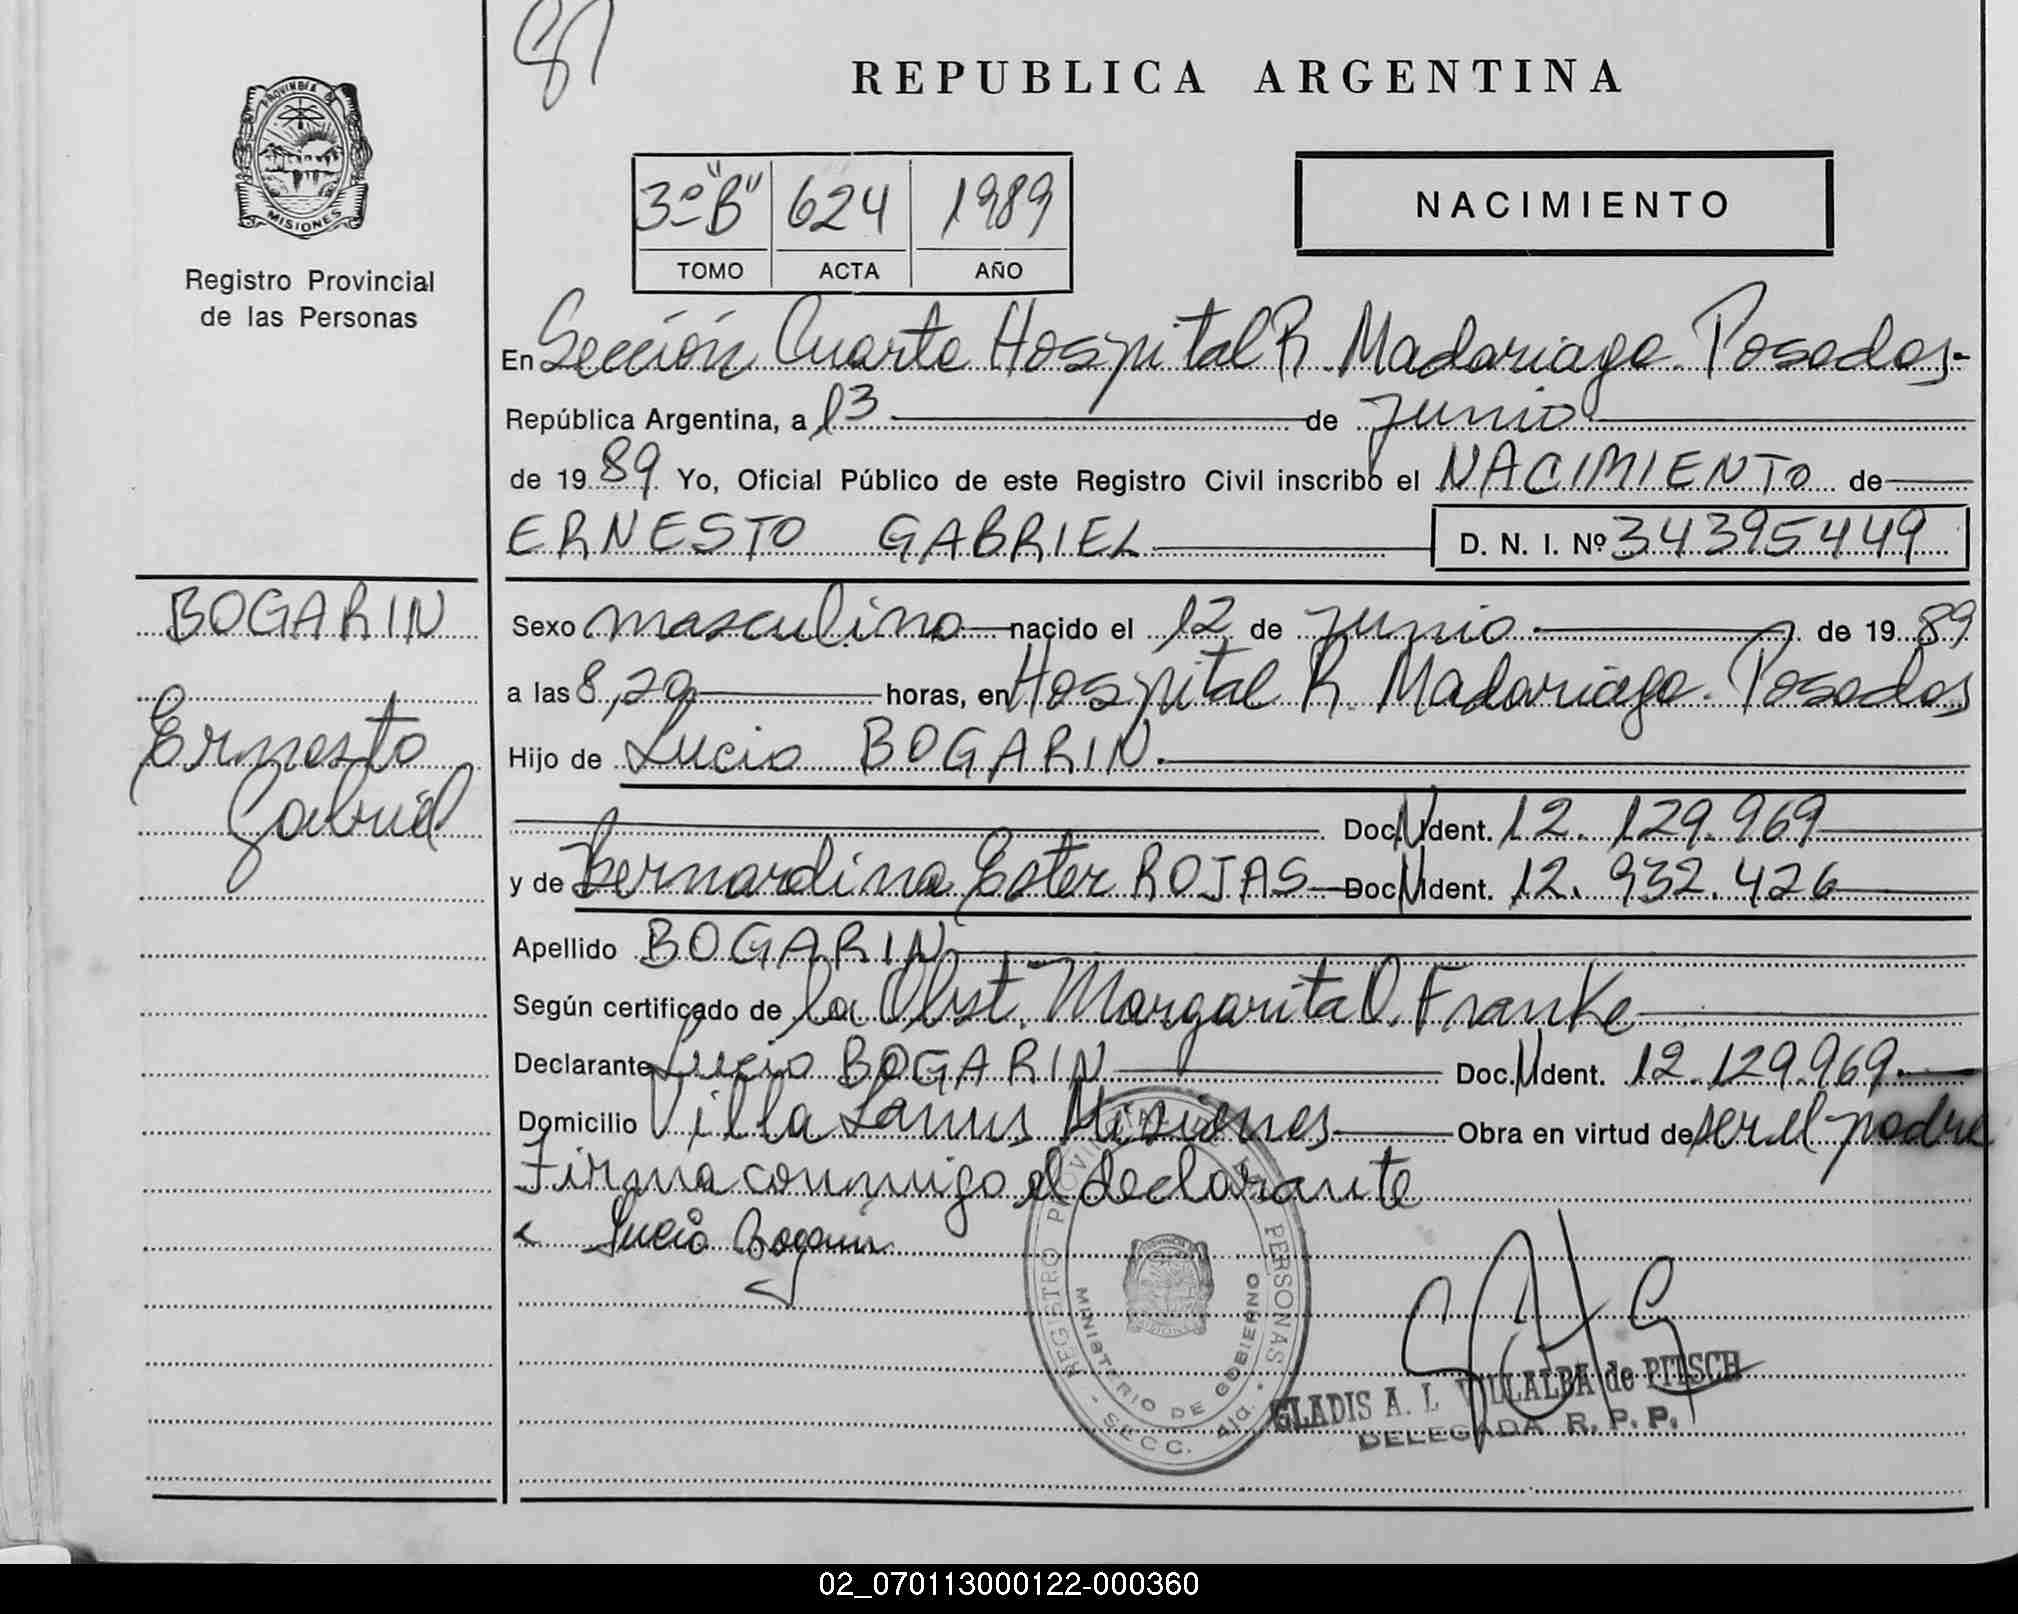 87
REPUBLICA ARGENTINA
PROVINCIA DE
MISIONES
Registro Provincial
de las Personas
3º "B" 624 1989
TOMO ACTA AÑO
NACIMIENTO
En Sección Cuarta Hospital R. Madariaga. Posadas-
República Argentina, a 13 de junio
de 1989 Yo, Oficial Público de este Registro Civil inscribo el NACIMIENTO de
ERNESTO GABRIEL D. N. I. Nº 34395449
BOGARIN
Ernesto
Gabriel
Sexo masculino nacido el 12 de junio. de 1989
a las 8,20 horas, en Hospital R. Madariaga. Posadas
Hijo de Lucio BOGARIN.
Doc. N Ident. 12.129.969
y de Bernardina Ester ROJAS Doc. N Ident. 12.932.426
Apellido BOGARIN
Según certificado de la Obst. Margarita O. Franke
Declarante Lucio BOGARIN Doc. N Ident. 12.129.969.
Domicilio Villa Lanus Misiones Obra en virtud de ser el padre
Firma conmigo el declarante
Lucio Bogarin
REGISTRO PROVINCIAL DE LAS PERSONAS
MINISTERIO DE GOBIERNO
SECC. 4ta.
GLADIS A. L VILLALBA de PITSCH
DELEGADA R. P. P.
02_070113000122-000360